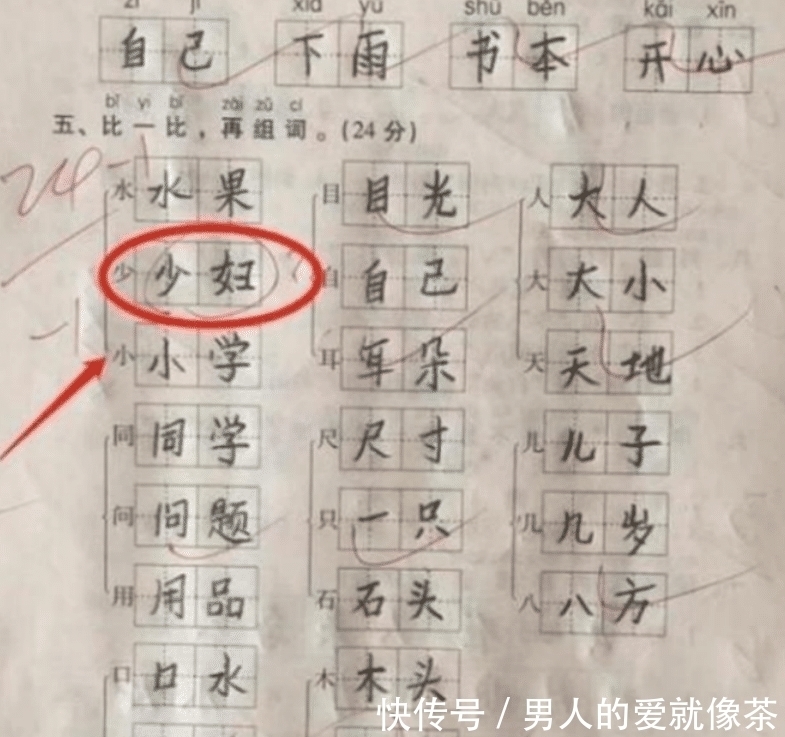 zì jǐ xià yǔ shū běn kāi xīn
自己 下雨 书本 开心
bǐ yi bǐ zài zǔ cí
五、比一比，再组词。(24分)
24-1
水 水果 目 目光 人 大人
少 少妇 自 自己 大 大小
-1
小 小学 耳 耳朵 天 天地
同 同学 尺 尺寸 儿 儿子
问 问题 只 一只 几 几岁
用 用品 石 石头 八 八方
口 口水 木 木头
快传号 / 男人的爱就像茶